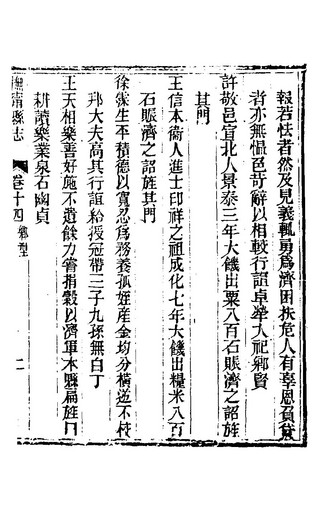 報若怯者然及見義輒勇爲濟困扶危人有辜恩負貸
者亦無慍色苛辭以相較行誼卓犖大祀鄉賢
許敬邑官北人景泰三年大饑出粟八百石賑濟之詔旌
其門
王信本衛人進士印祥之祖成化七年大饑出糧米八百
石賑濟之詔旌其門
徐榮生平積德以寬忍爲務養孤姪產金均分橫逆不校
邦大夫高其行誼給授冠帶三子九孫無白丁
王天相樂善好施不遺餘力嘗捐穀以濟軍本縣扁旌曰
耕讀樂業泉石幽貞
清縣志
卷十四
二